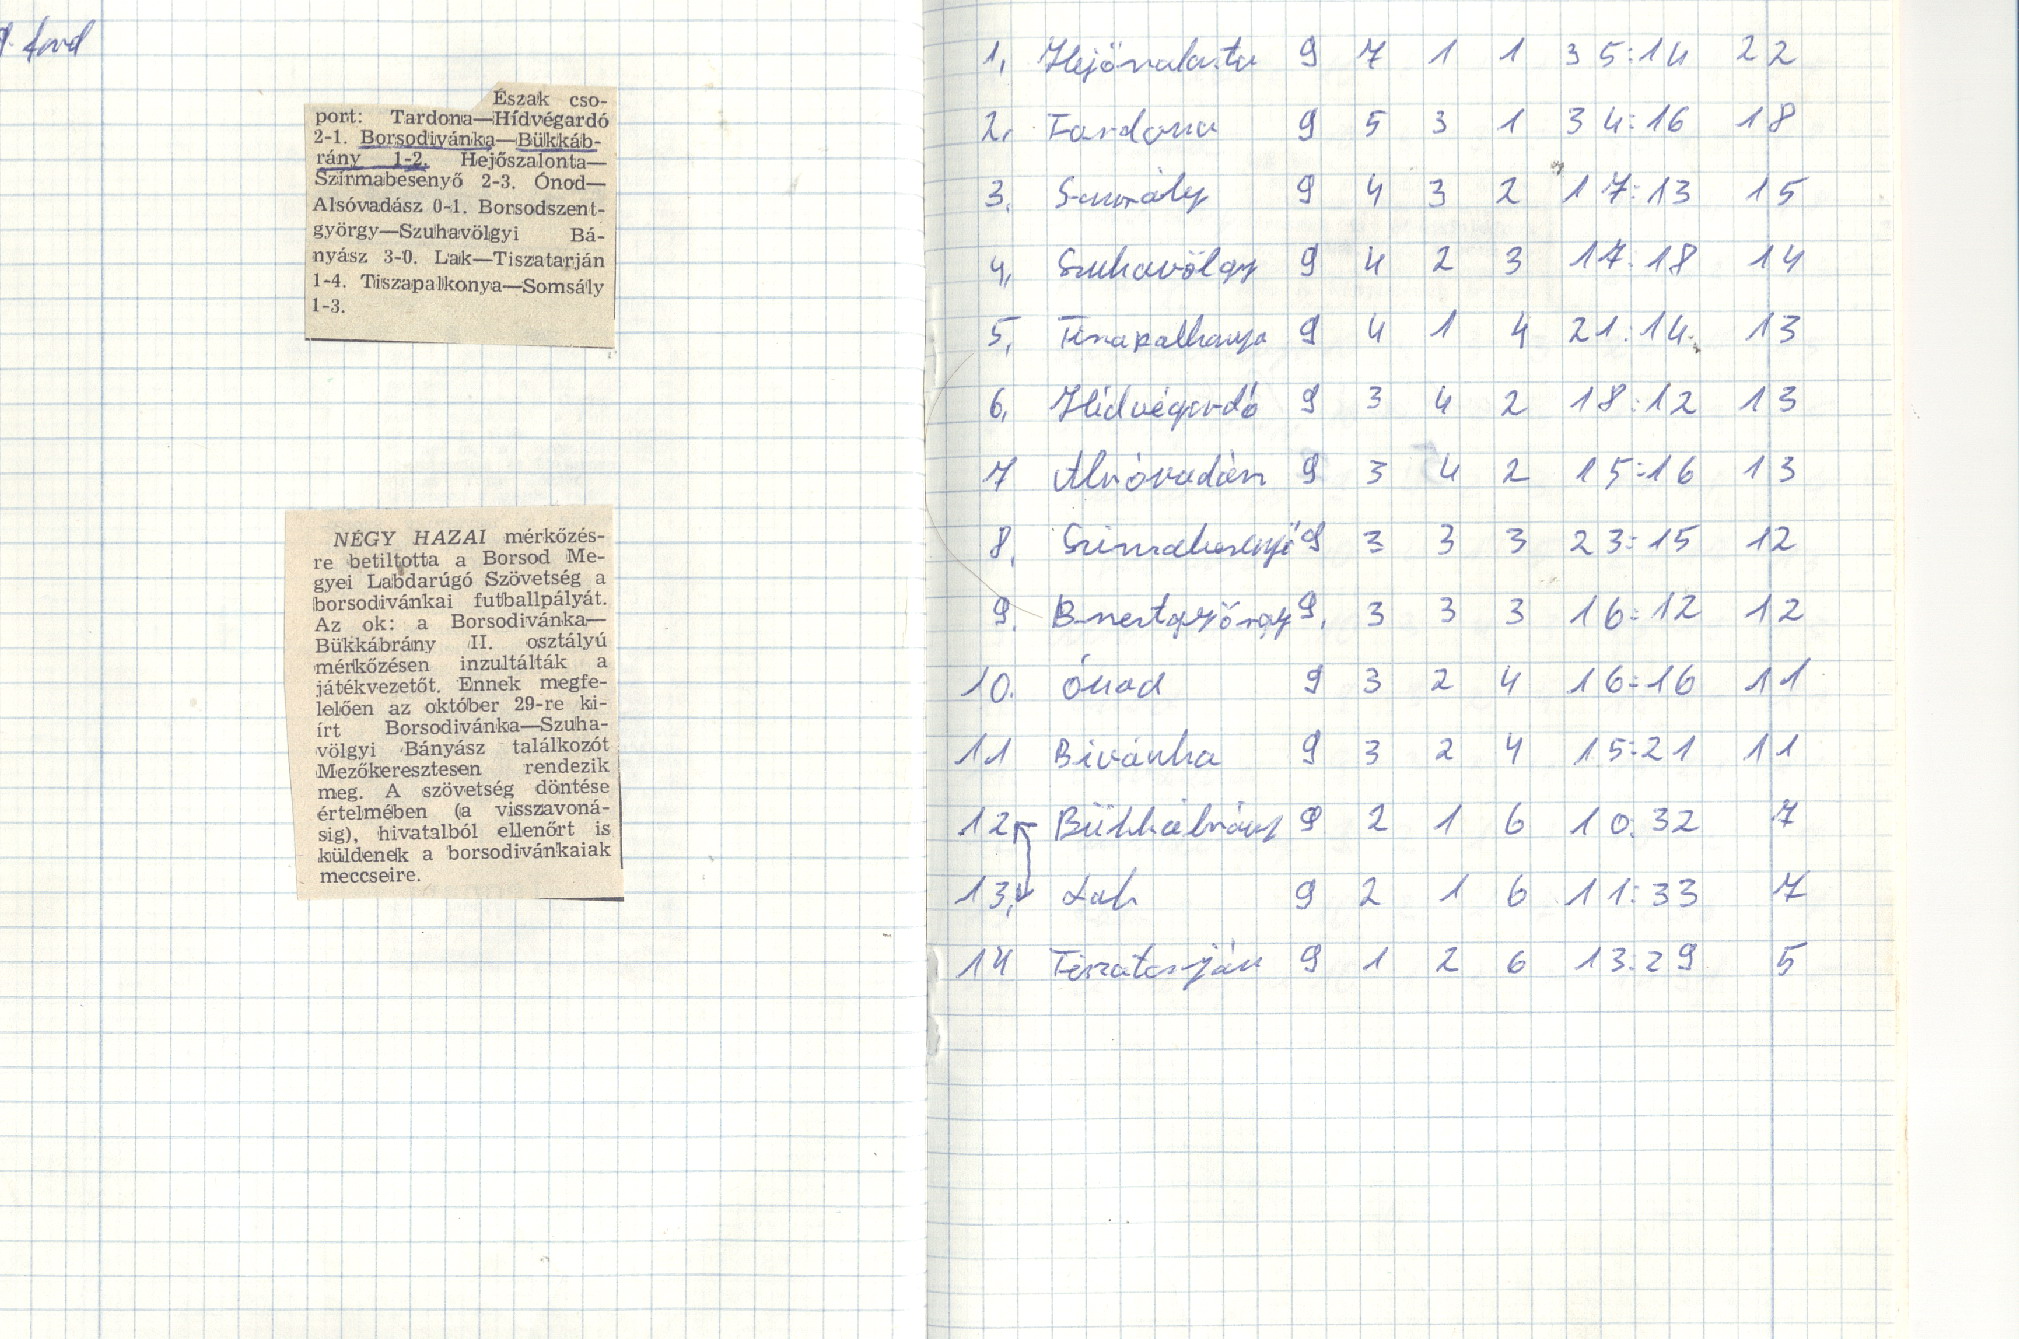 9. ford
Észak cso-
port: Tardona—Hídvégardó
2-1. Borsodivánka—Bükkáb-
rány 1-2. Hejőszalonta—
Szirmabesenyő 2-3. Ónod—
Alsóvadász 0-1. Borsodszent-
györgy—Szuhavölgyi Bá-
nyász 3-0. Lak—Tiszatarján
1-4. Tiszapalkonya—Somsály
1-3.
NÉGY HAZAI mérkőzés-
re betiltotta a Borsod Me-
gyei Labdarúgó Szövetség a
borsodivánkai futballpályát.
Az ok: a Borsodivánka—
Bükkábrány II. osztályú
mérkőzésen inzultálták a
játékvezetőt. Ennek megfe-
lelően az október 29-re ki-
írt Borsodivánka—Szuha-
völgyi Bányász találkozót
Mezőkeresztesen rendezik
meg. A szövetség döntése
értelmében (a visszavoná-
sig), hivatalból ellenőrt is
küldenek a borsodivánkaiak
meccseire.
1, Hejőszalonta 9 7 1 1 35:14 22
2, Tardona 9 5 3 1 34:16 18
3, Somsály 9 4 3 2 17:13 15
4, Szuhavölgy 9 4 2 3 17:18 14
5, Tiszapalkonya 9 4 1 4 21:14 13
6, Hídvégardó 9 3 4 2 18:12 13
7 Alsóvadász 9 3 4 2 15:16 13
8, Szirmabesenyő 9 3 3 3 23:15 12
9, B-szentgyörgy 9, 3 3 3 16:12 12
10. Ónod 9 3 2 4 16:16 11
11 Bivánka 9 3 2 4 15:21 11
12 Bükkábrány 9 2 1 6 10:32 7
13, Lak 9 2 1 6 11:33 7
14 Tiszatarján 9 1 2 6 13:29 5